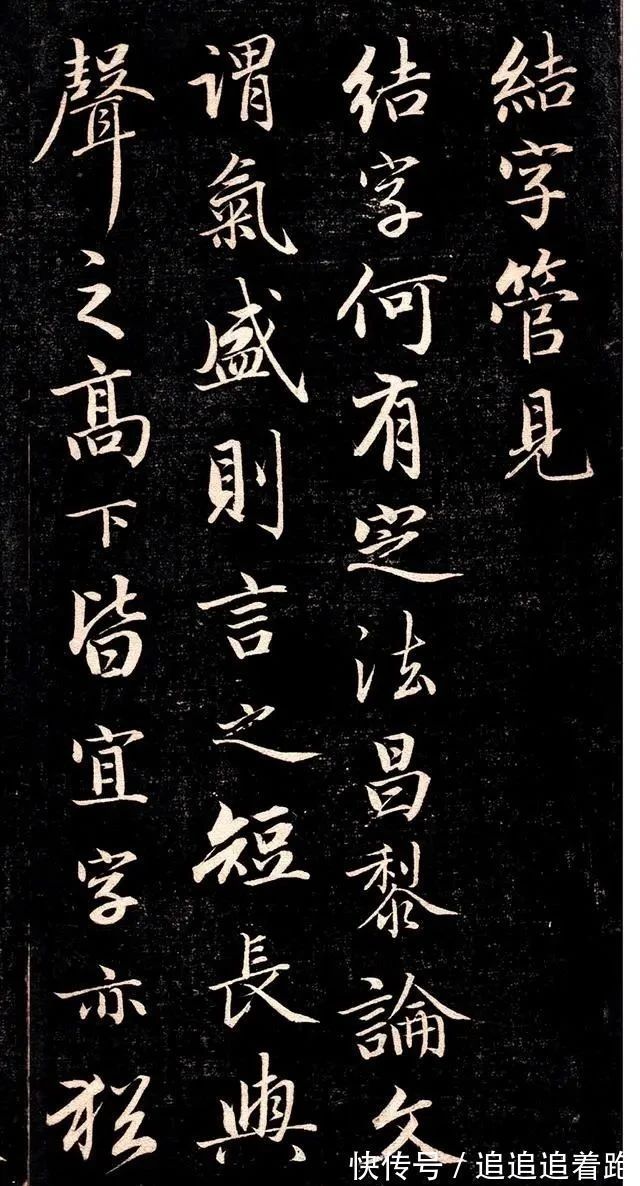 結字管見
結字何有定法昌黎論文
謂氣盛則言之短長與
聲之高下皆宜字亦猶
快传号/追追追着跑